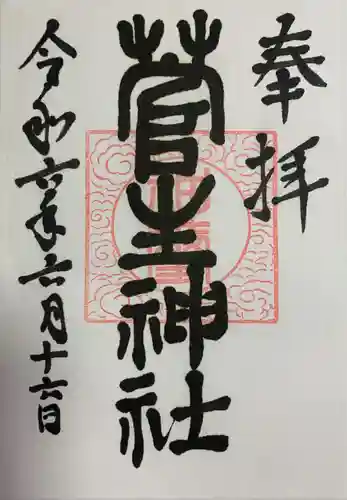 奉拝
菅生神社
令和六年六月十六日